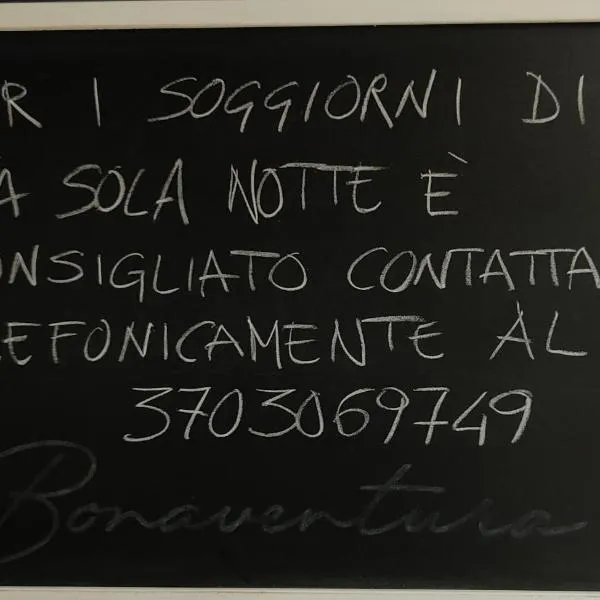 R I SOGGIORNI DI
A SOLA NOTTE È
ONSIGLIATO CONTATTA
EFONICAMENTE AL
3703069749
Bonaventura